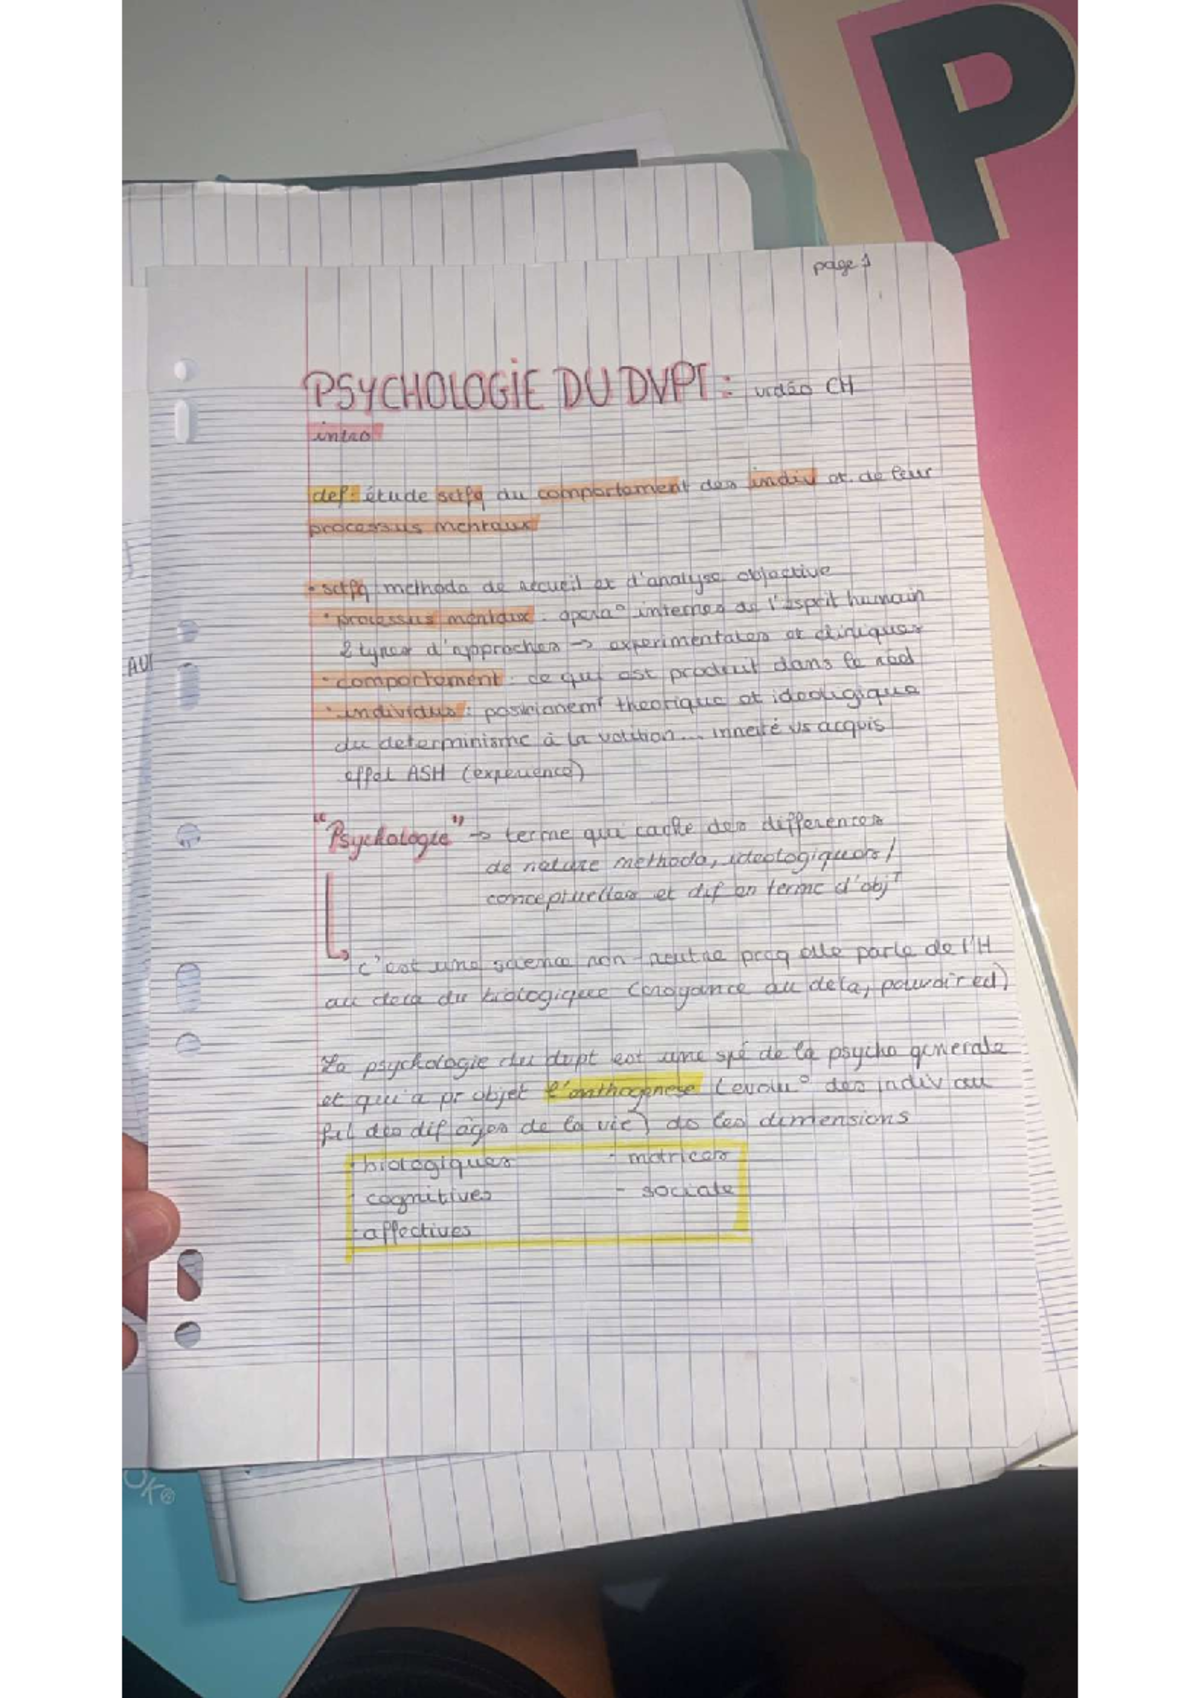 P
page 1
PSYCHOLOGIE DU DVPT : vidéo CH
intro
def : étude sctfq du comportement des indiv et de leur
processus mentaux
• sctfq methode de recueil et d'analyse objective
• processus mentaux : opera° internes de l'esprit humain
2 types d'approches → experimentales et cliniques
• comportement : ce qui est produit dans le réel
• individus : positionemt theorique et ideologique
du determinisme à la volition... inneité vs acquis
effet ASH (experience)
"Psychologie" → terme qui cache des differences
de nature methodo, ideologiques /
conceptuelles et dif en terme d'objt
c'est une science non neutre pcq elle parle de l'H
au dela du biologique (croyance au dela, pouvoir ect)
La psychologie du dvpt est une spé de la psycho generale
et qui a pr objet l'onthogenese (evolu° des indiv au
fil des dif âges de la vie) ds les dimensions
- biologiques - motrices
- cognitives - sociale
- affectives
AUI
OK®